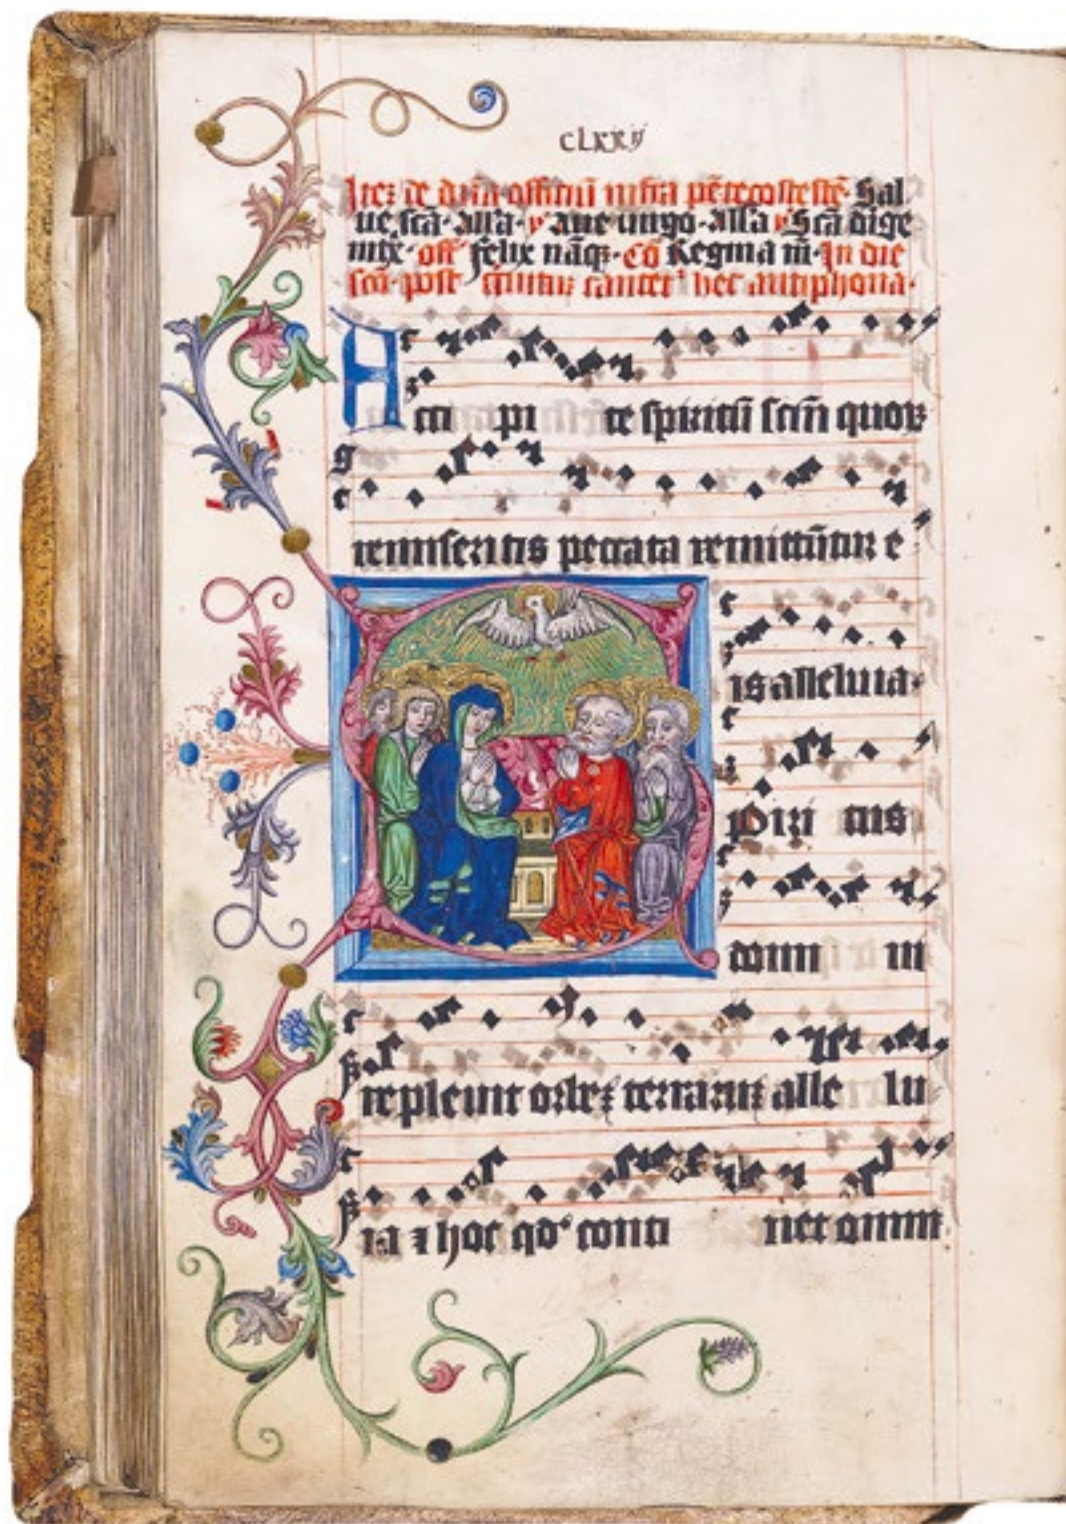 clxxij
Itez de dn̄a offitiū infra pētecostestē· Sal
ue scā· alla· ỿ aue uirgo· alla ỿ Scā dige
nitx· off̄ felix nāqꝫ· Cō Regina m̄· In die
scō· post cantet hec antiphona·
Acci pi te spiritū scm̄ quoꝝ
remiseritis peccata remittūtur e
is alleluia·
Spiri tus
domi ni
repleuit orbeꝫ terraruꝫ alle lu
ia ⁊ hoc qd̕ conti net omni